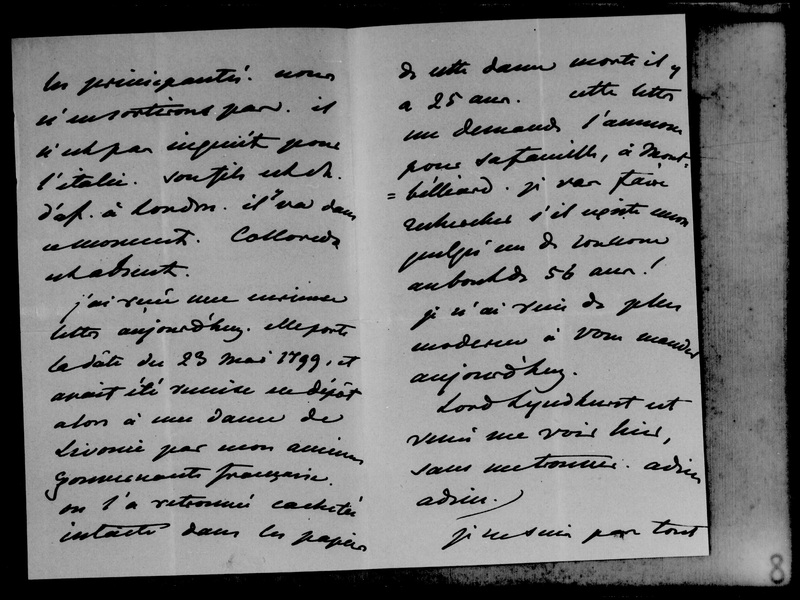 les principautés. nous
n'en sortirons pas. il
n'est pas inquiet pour
l'italie. son fils est ch.
d'af. à London. il y va dans
ce moment. Colloredo
est absent.
j'ai reçu une curieuse
lettre aujourd'huy. Elle porte
la date du 23 mai 1799, et
avait été remise en dépôt
alors à une dame de
Livonie par mon ancienne
gouvernante française.
on l'a retrouvée cachetée
intacte dans les papiers
de cette dame morte il y
a 25 ans. cette lettre
me demande l'aumone
pour sa famille, à Mont-
=béliard. je vais faire
rechercher s'il existe encore
quelqu'un de
au bout de 56 ans !
je n'ai rien de plus
moderne à vous mander
aujourd'huy.
Lord Lyndhurst est
venu me voir hier,
sans m'etonner. adieu
adieu.)
je ne suis pas tout
8